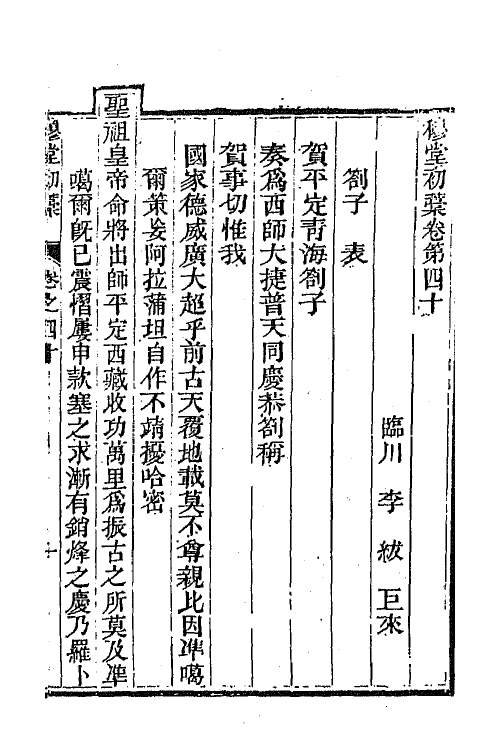 穆堂初藁卷第四十
臨川 李 紱 巨來
劄子 表
賀平定青海劄子
奏爲西師大捷普天同慶恭劄稱
賀事切惟我
國家德威廣大超乎前古天覆地載莫不尊親比因準噶
爾策妄阿拉蒲坦自作不靖擾哈密
聖祖皇帝命將出師平定西藏收功萬里爲振古之所莫及準
噶爾旣已震慴屢申款塞之求漸有銷烽之慶乃羅卜
穆堂初藁 卷之四十